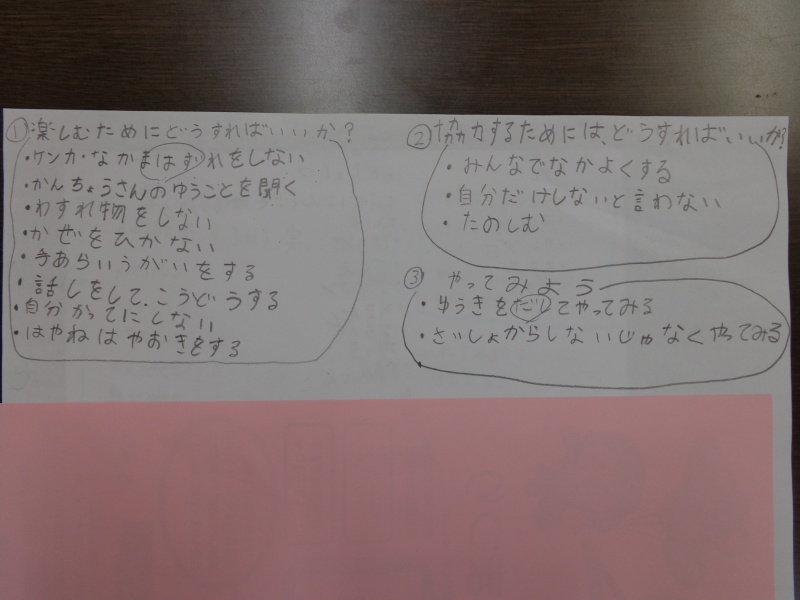 ① 楽しむためにどうすればいいか?
・ケンカ・なかまはずれをしない
・かんちょうさんのゆうことを聞く
・わすれ物をしない
・かぜをひかない
・手あらいうがいをする
・話しをして、こうどうする
・自分かってにしない
・はやねはやおきをする
② 協力するためには、どうすればいいか?
・みんなでなかよくする
・自分だけしないと言わない
・たのしむ
③ やってみよう
・ゆうきをだしてやってみる
・さいしょからしないじゃなくやってみる